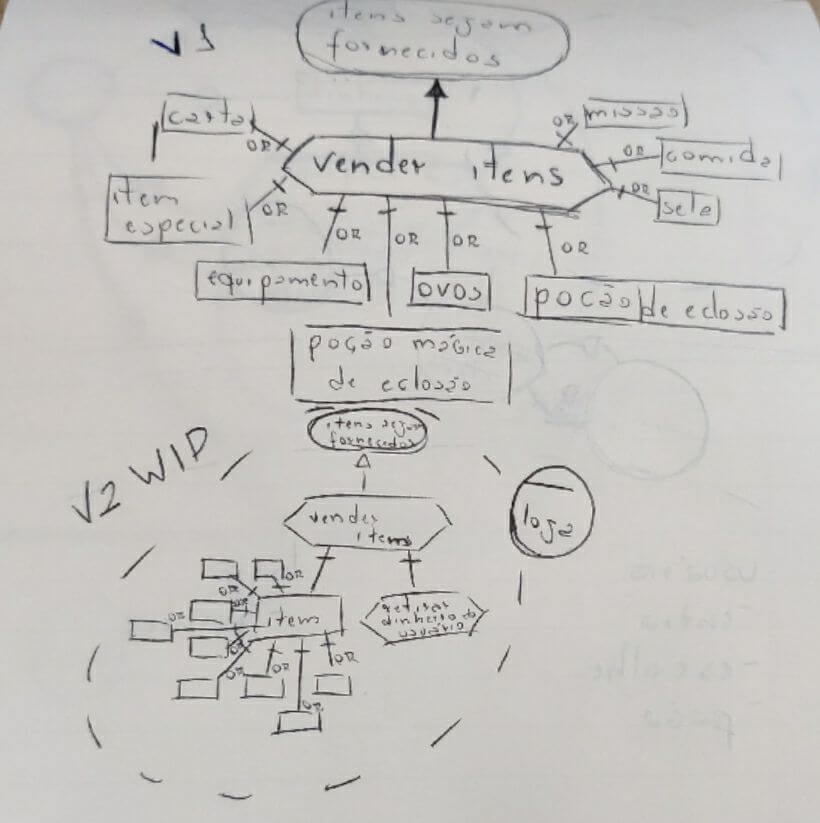 V1
itens sejam
fornecidos
carta
OR
missão
OR
vender itens
OR
comida
item
especial
OR
OR
sela
OR
OR
OR
OR
equipamento
ovos
poção de eclosão
poção mágica
de eclosão
itens sejam
fornecidos
V2 WIP
vender
itens
loja
OR
OR
OR
OR
itens
retirar
dinheiro do
usuário
OR
OR
OR
OR
OR
usuário
- entra
- escolhe
- paga